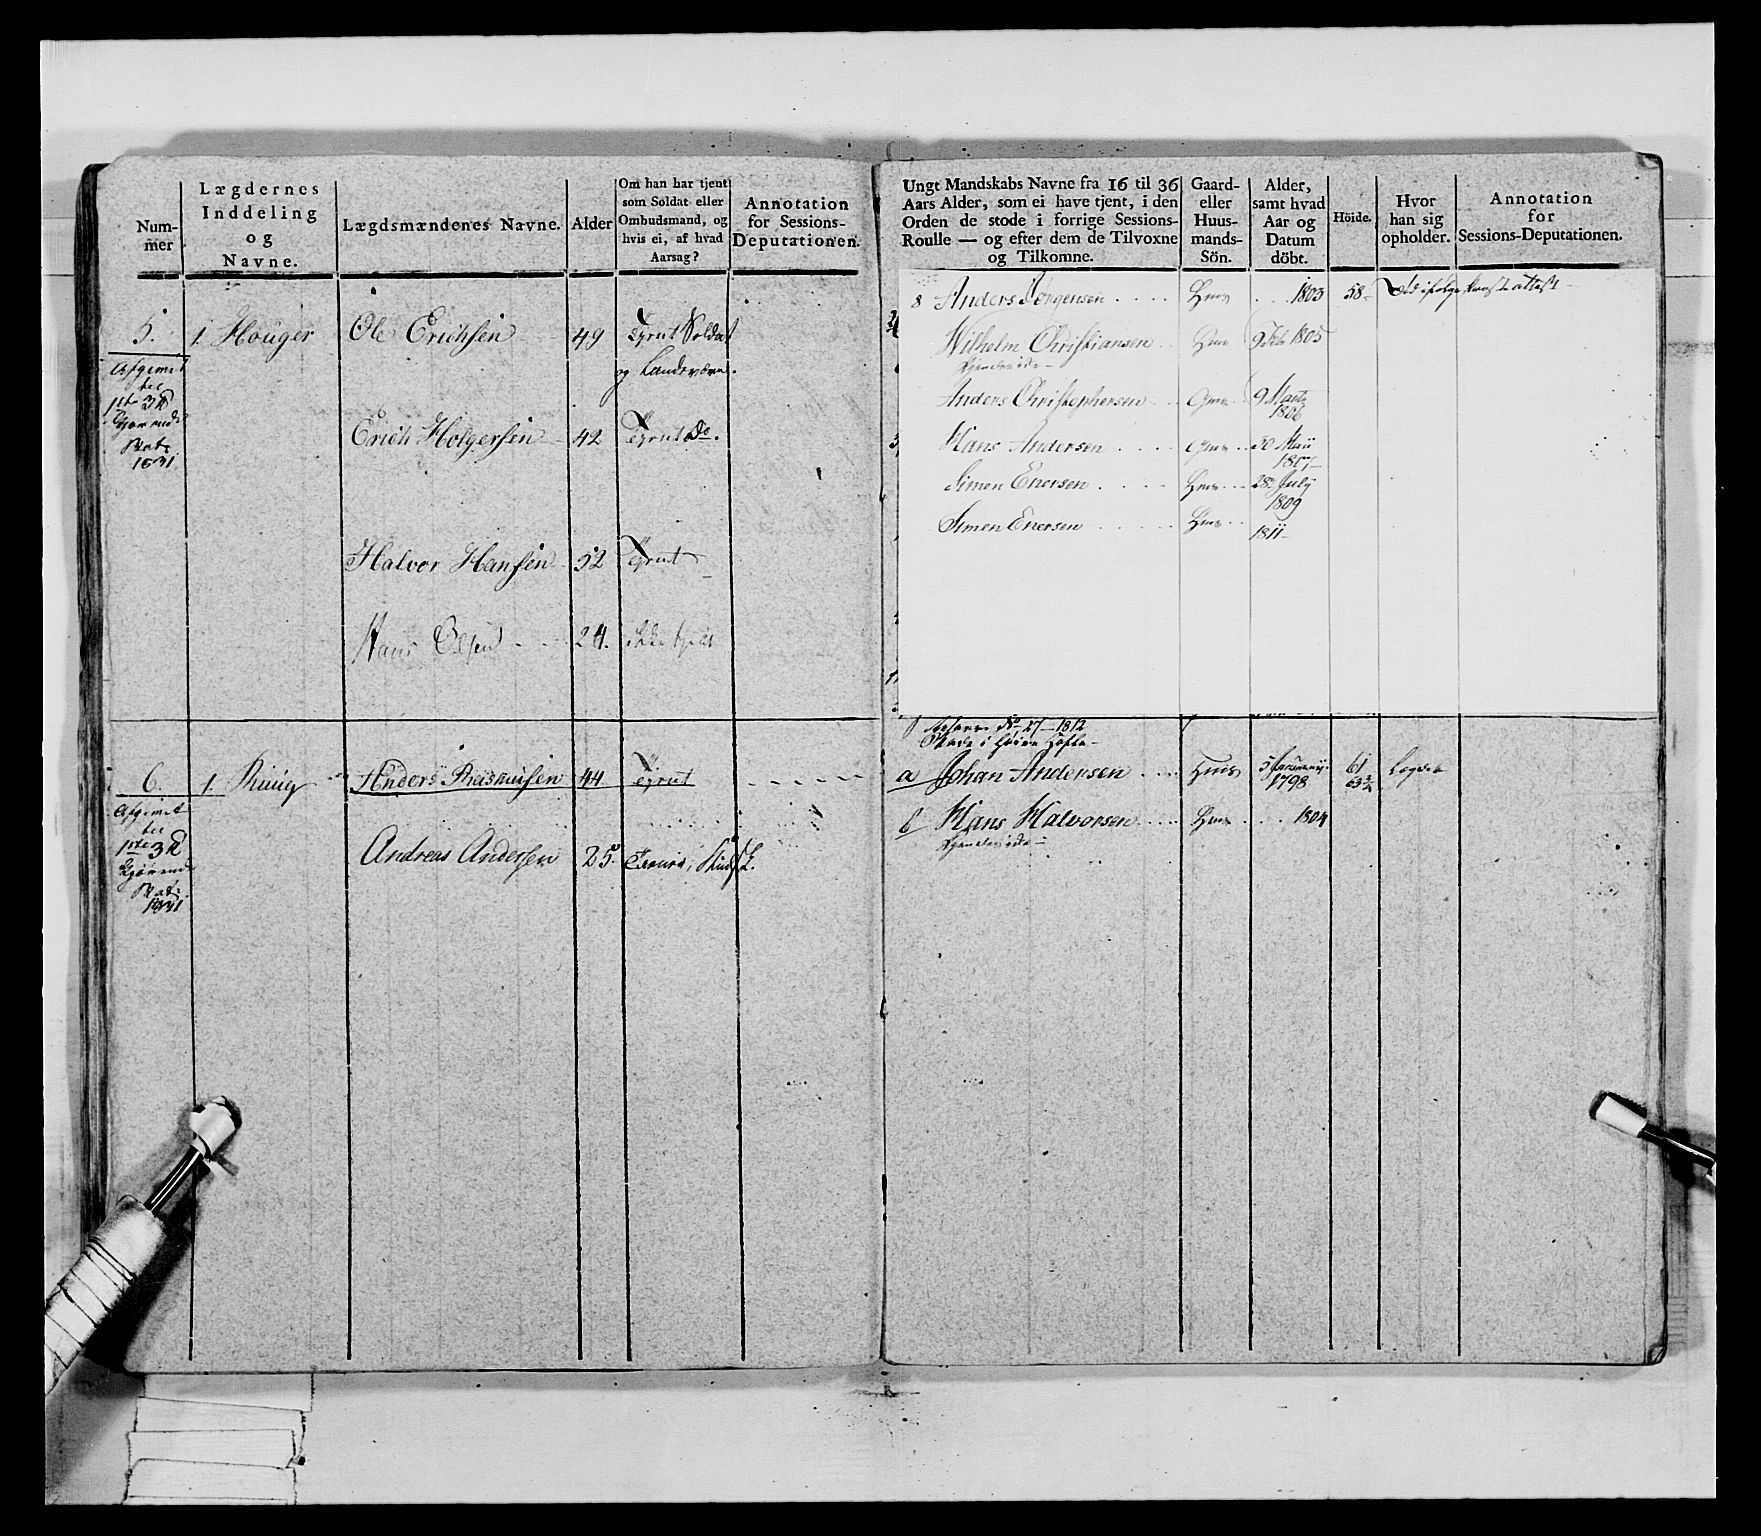 Num-
mer
Lægdernes
Inddeling
og
Navne.
Lægdsmændenes Navne.
Alder
Om han har tjent
som Soldat eller
Ombudsmand, og
hvis ei, af hvad
Aarsag?
Annotation
for Sessions-
Deputationen.
5.
1. Houger
Ole Erichsen
49
Soldat
og Landeværn.
Afgivet
til
1ste
1831
Erich Holgersen
42
Do.
Halvor Hansen
52
Hans Olsen
24.
6.
1. Ruug
Anders Rasmussen
44
Afgivet
til
1831
Andreas Andersen
25.
Ungt Mandskabs Navne fra 16 til 36
Aars Alder, som ei have tjent, i den
Orden de stode i forrige Sessions-
Roulle — og efter dem de Tilvoxne
og Tilkomne.
Gaard-
eller
Huus-
mands-
Sön.
Alder,
samt hvad
Aar og
Datum
döbt.
Höide.
Hvor
han sig
opholder.
Annotation
for
Sessions-Deputationen.
8 Anders Jörgensen
Hms
1803
58
Wilhelm Christiansen
Hms
9 Feb 1805
Anders Christophersen
Gms
9 Marts
1806
Hans Andersen
Gms
20 Maii
1807
Simen Enersen
Hms
28 July
1809
Simen Enersen
Hms
1811
No 27 1812
a Johan Andersen
Hms
5 Januarii
1798
61
63 3/4
Lægdet
b Hans Halvorsen
Hms
1804